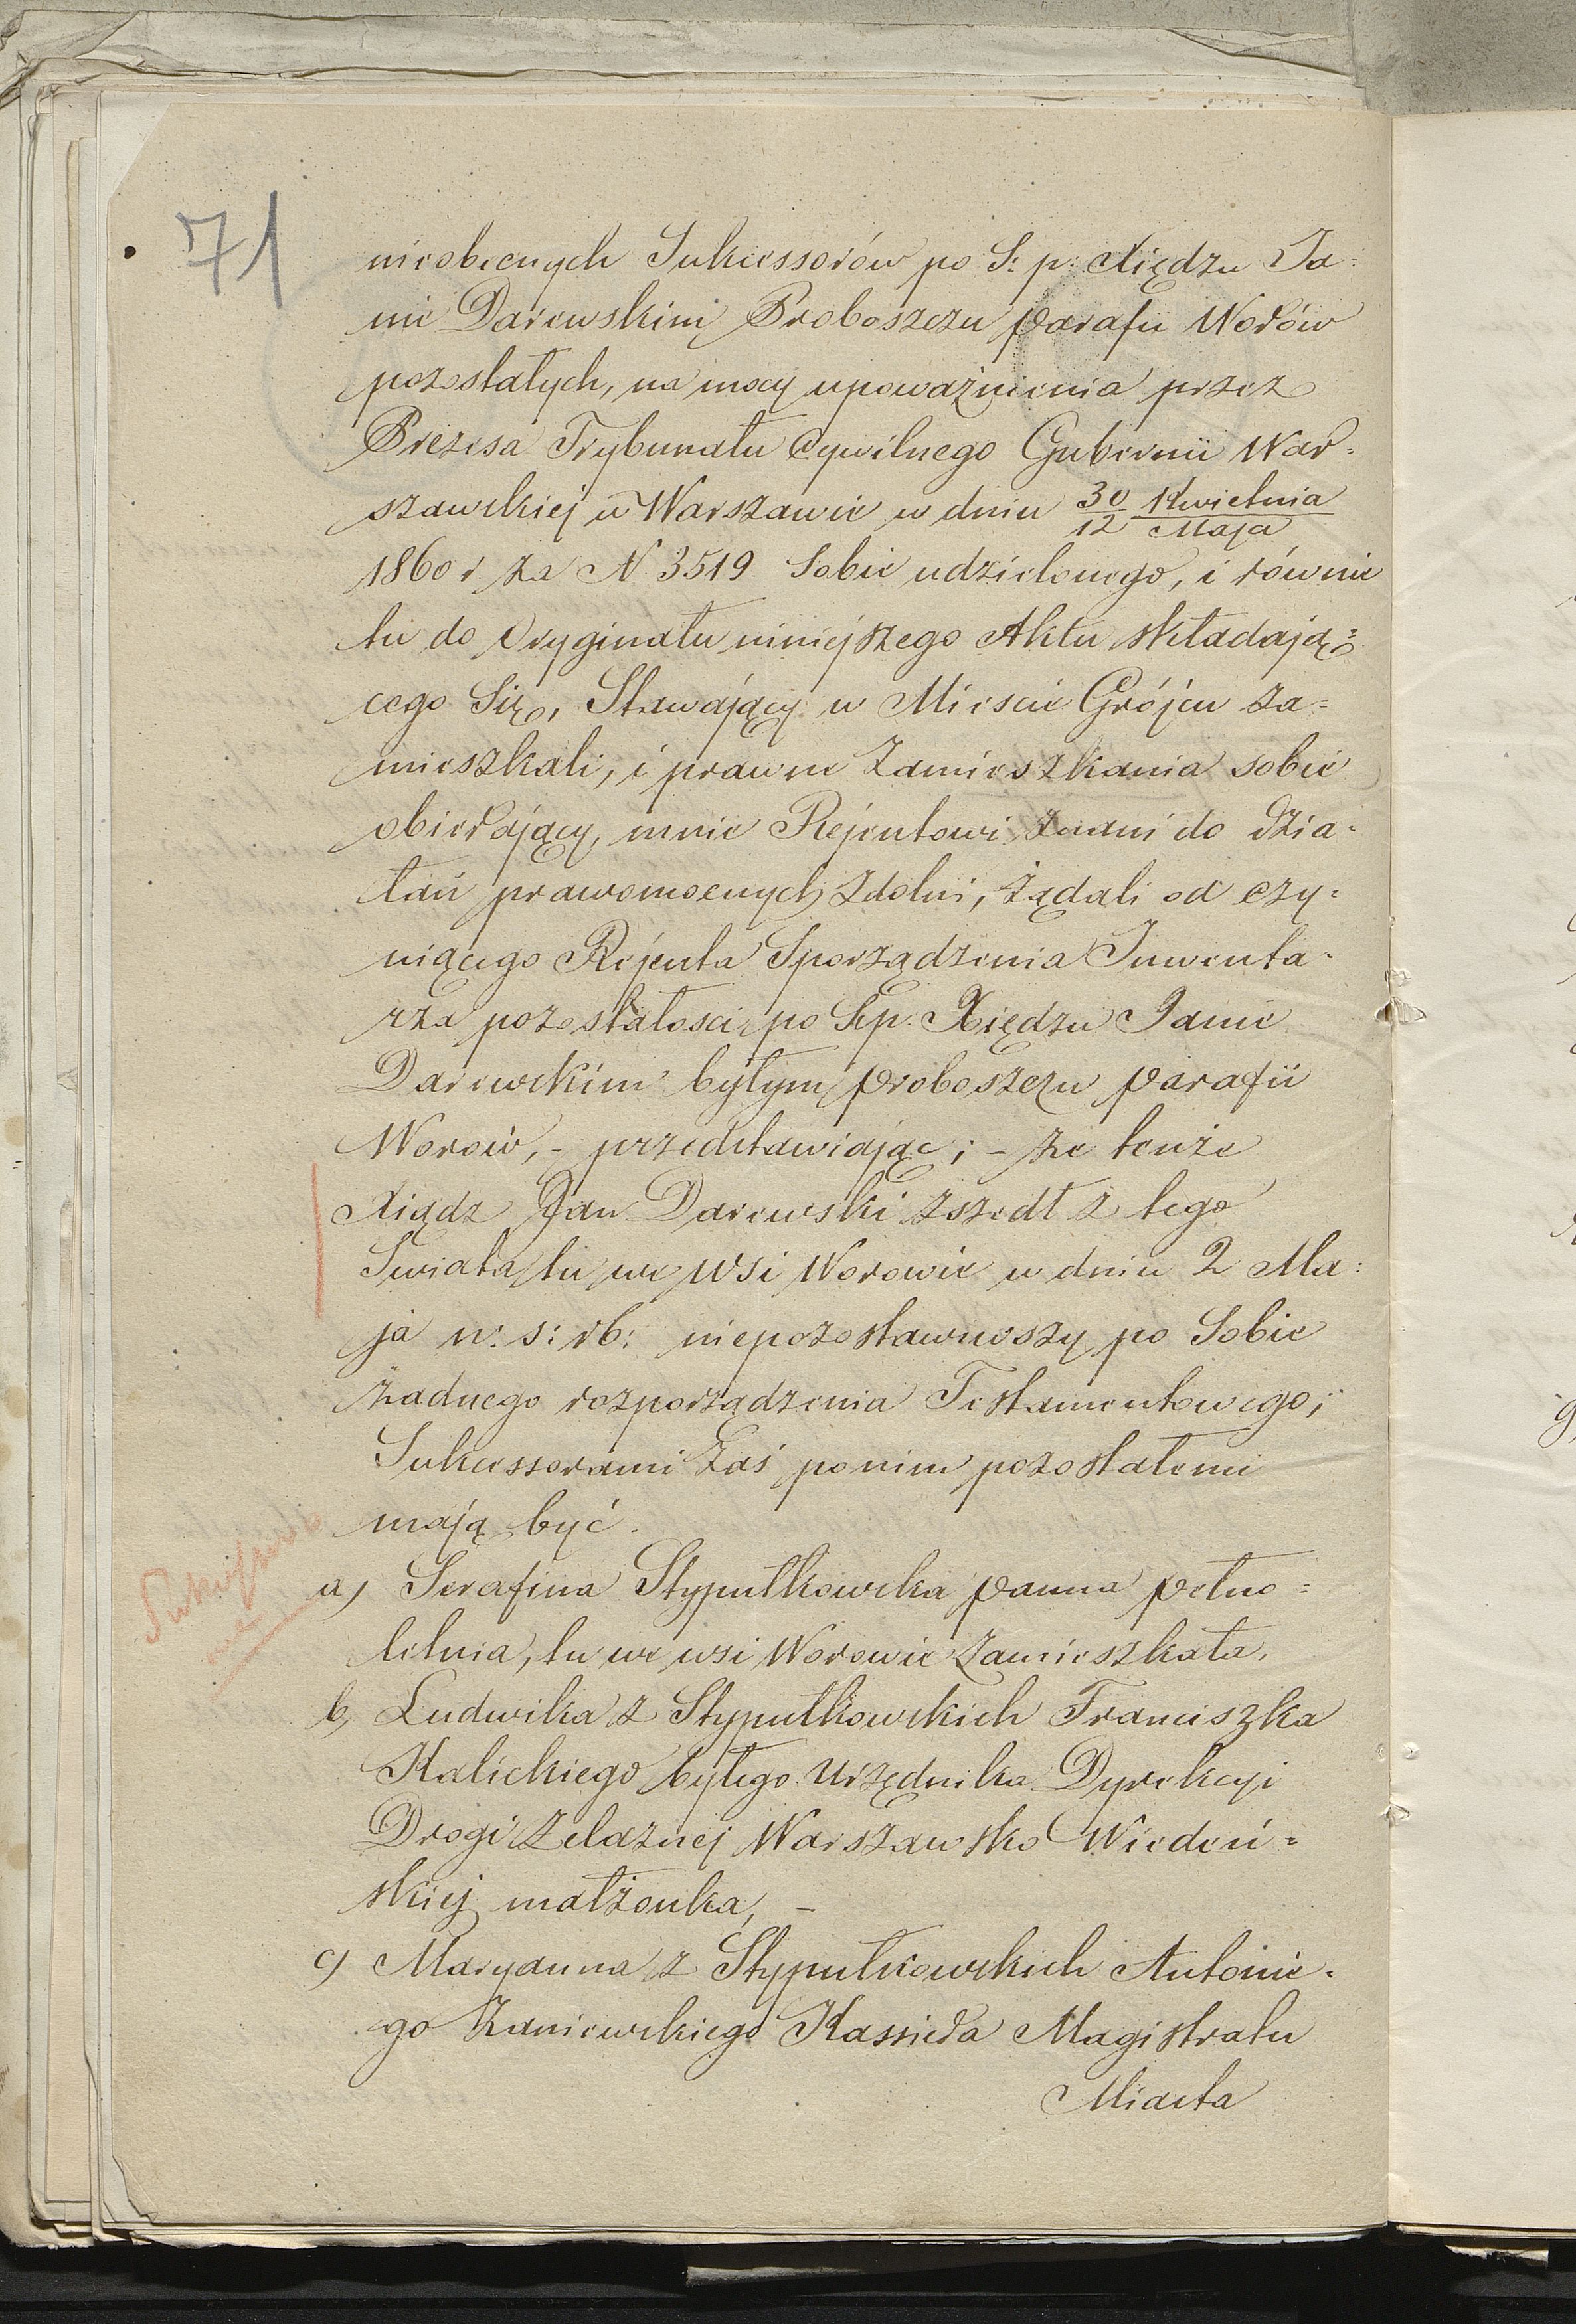 71
nieobecnych Sukcessorów po S: p: Xiędzu Ja=
nie Darewskim Proboszczu parafii Worów
pozostałych, na mocy upoważnienia przez
Prezesa Trybunału Cywilnego Gubernii War=
szawskiej w Warszawie w dniu 30/12 Kwietnia/Maja
1860 r. za N 3519 Sobie udzielonego, i równie
tu do Oryginału niniejszego Aktu składają=
cego Się, Stawający w Mieście Grójcu za=
mieszkali, i prawne Zamieszkania sobie
obierający, mnie Rejentowi znani do dzia=
łań prawomocnych zdolni, żądali od czy=
niącego Rejenta Sporządzenia Inwenta=
rza pozostałosci po Sp. Xiędzu Janie
Darewskim byłym proboszczu parafii
Worów, - przedstawiając; - że tenże
Xiądz Jan Darewski zszedł z tego
Swiata tu we Wsi Worowie w dniu 2 Ma=
ja n: s: rb: niepozostawiwszy po Sobie
żadnego rozporządzenia Testamentowego;
Sukcessorami Zaś po nim pozostałemi
mają być.
a) Serafina Stypułkowska panna pełno=
letnia, tu we wsi Worowie zamieszkała.
b) Ludwika z Stypułkowskich Franciszka
Kalickiego byłego Urzędnika Dyrekcyi
Drogi Żelaznej Warszawsko Wiedeń=
skiej małżonka, -
c) Maryanna z Stypułkowskich Antonie=
go Zaniewskiego Kassiera Magistratu
Miasta